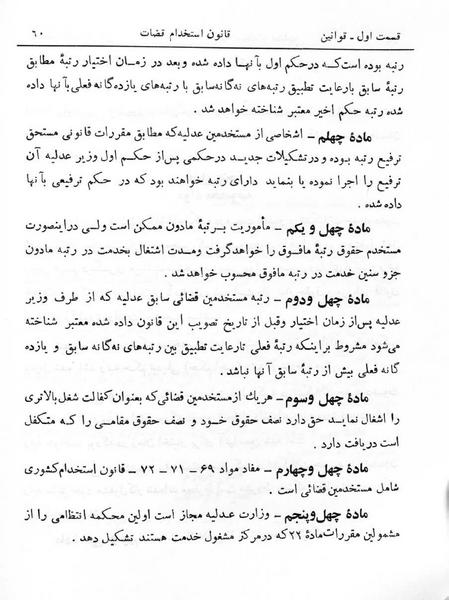 قسمت اول ـ قوانین قانون استخدام قضات ۶۰
رتبه بوده است که در حکم اول بآنها داده شده وبعد در زمان اختیار رتبهٔ مطابق
رتبهٔ سابق بارعایت تطبیق رتبه‌های نه‌گانه سابق با رتبه‌های یازده گانه فعلی بآنها داده
شده رتبه حکم اخیر معتبر شناخته خواهد شد.
مادهٔ چهلم ـ اشخاصی از مستخدمین عدلیه که مطابق مقررات قانونی مستحق
ترفیع رتبه بوده و در تشکیلات جدید در حکمی پس از حکم اول وزیر عدلیه آن
ترفیع را اجرا نموده یا بنماید دارای رتبه خواهند بود که در حکم ترفیعی بآنها
داده شده.
مادهٔ چهل و یکم ـ مأموریت برتبهٔ مادون ممکن است ولی در اینصورت
مستخدم حقوق رتبهٔ مافوق را خواهد گرفت ومدت اشتغال بخدمت در رتبه مادون
جزو سنین خدمت در رتبه مافوق محسوب خواهد شد.
مادهٔ چهل ودوم ـ رتبه مستخدمین قضائی سابق عدلیه که از طرف وزیر
عدلیه پس از زمان اختیار وقبل از تاریخ تصویب این قانون داده شده معتبر شناخته
می‌شود مشروط براینکه رتبهٔ فعلی تارعایت تطبیق بین رتبه‌های نه‌گانه سابق و یازده
گانه فعلی بیش از رتبهٔ سابق آنها نباشد.
مادهٔ چهل وسوم ـ هر یك از مستخدمین قضائی که بعنوان کفالت شغل بالاتری
را اشغال نماید حق دارد نصف حقوق خود و نصف حقوق مقامی را که متکفل
است دریافت دارد.
مادهٔ چهل وچهارم ـ مفاد مواد ۶۹ ـ ۷۱ ـ ۷۲ ـ قانون استخدام کشوری
شامل مستخدمین قضائی است.
مادهٔ چهل وپنجم ـ وزارت عدلیه مجاز است اولین محکمه انتظامی را از
مشمولین مقررات مادهٔ ۲۲ که در مرکز مشغول خدمت هستند تشکیل دهد.